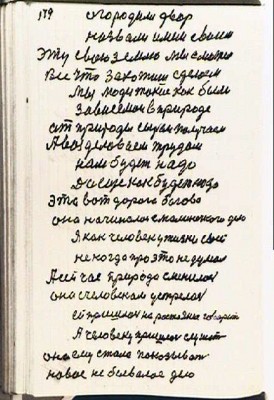 179 огородили двор
назвали имем своим
Эту свою землю мы сможем
Все что захотим сделаем
Мы люди такие как были
Зависемои в природе
от природы сырьем получаем
А всё деловаем трудом
нам будет надо
Да еще как будет надо
Это вот дорога богово
она начиналос с маленького дело
Я как человек у жизни своей
не когда про это не думал
А сейчас природа сменилос
она с человеком устрелас
ей пришлос на растояние говорит
А человеку пришлос слушат
она ему стала показыват
новое не бывалое дело